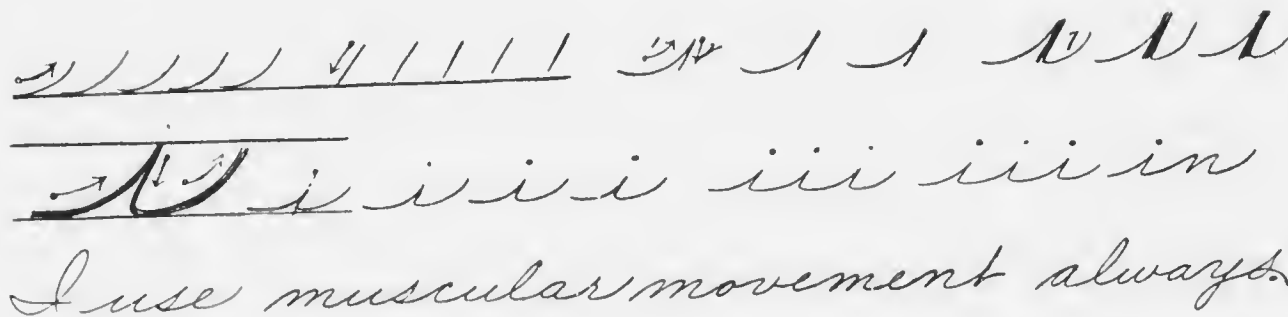 i i i i i iii iii in
I use muscular movement always.